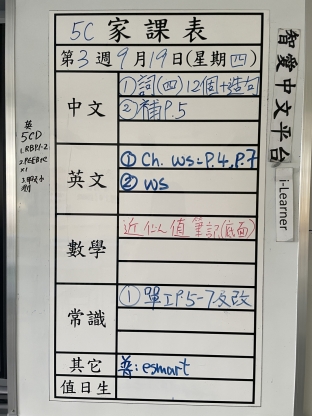 5C 家課表
第3週9月19日(星期四)
中文
①詞(四)12個+造句
②補P.5
英文
① Ch. WS=P.4, P.7
② WS
數學
近似值筆記(底面)
常識
①單工P.5-7反改
其它
普: esmart
值日生
智愛中文平台
i-Learner
英
5CD
1. RBP1-2